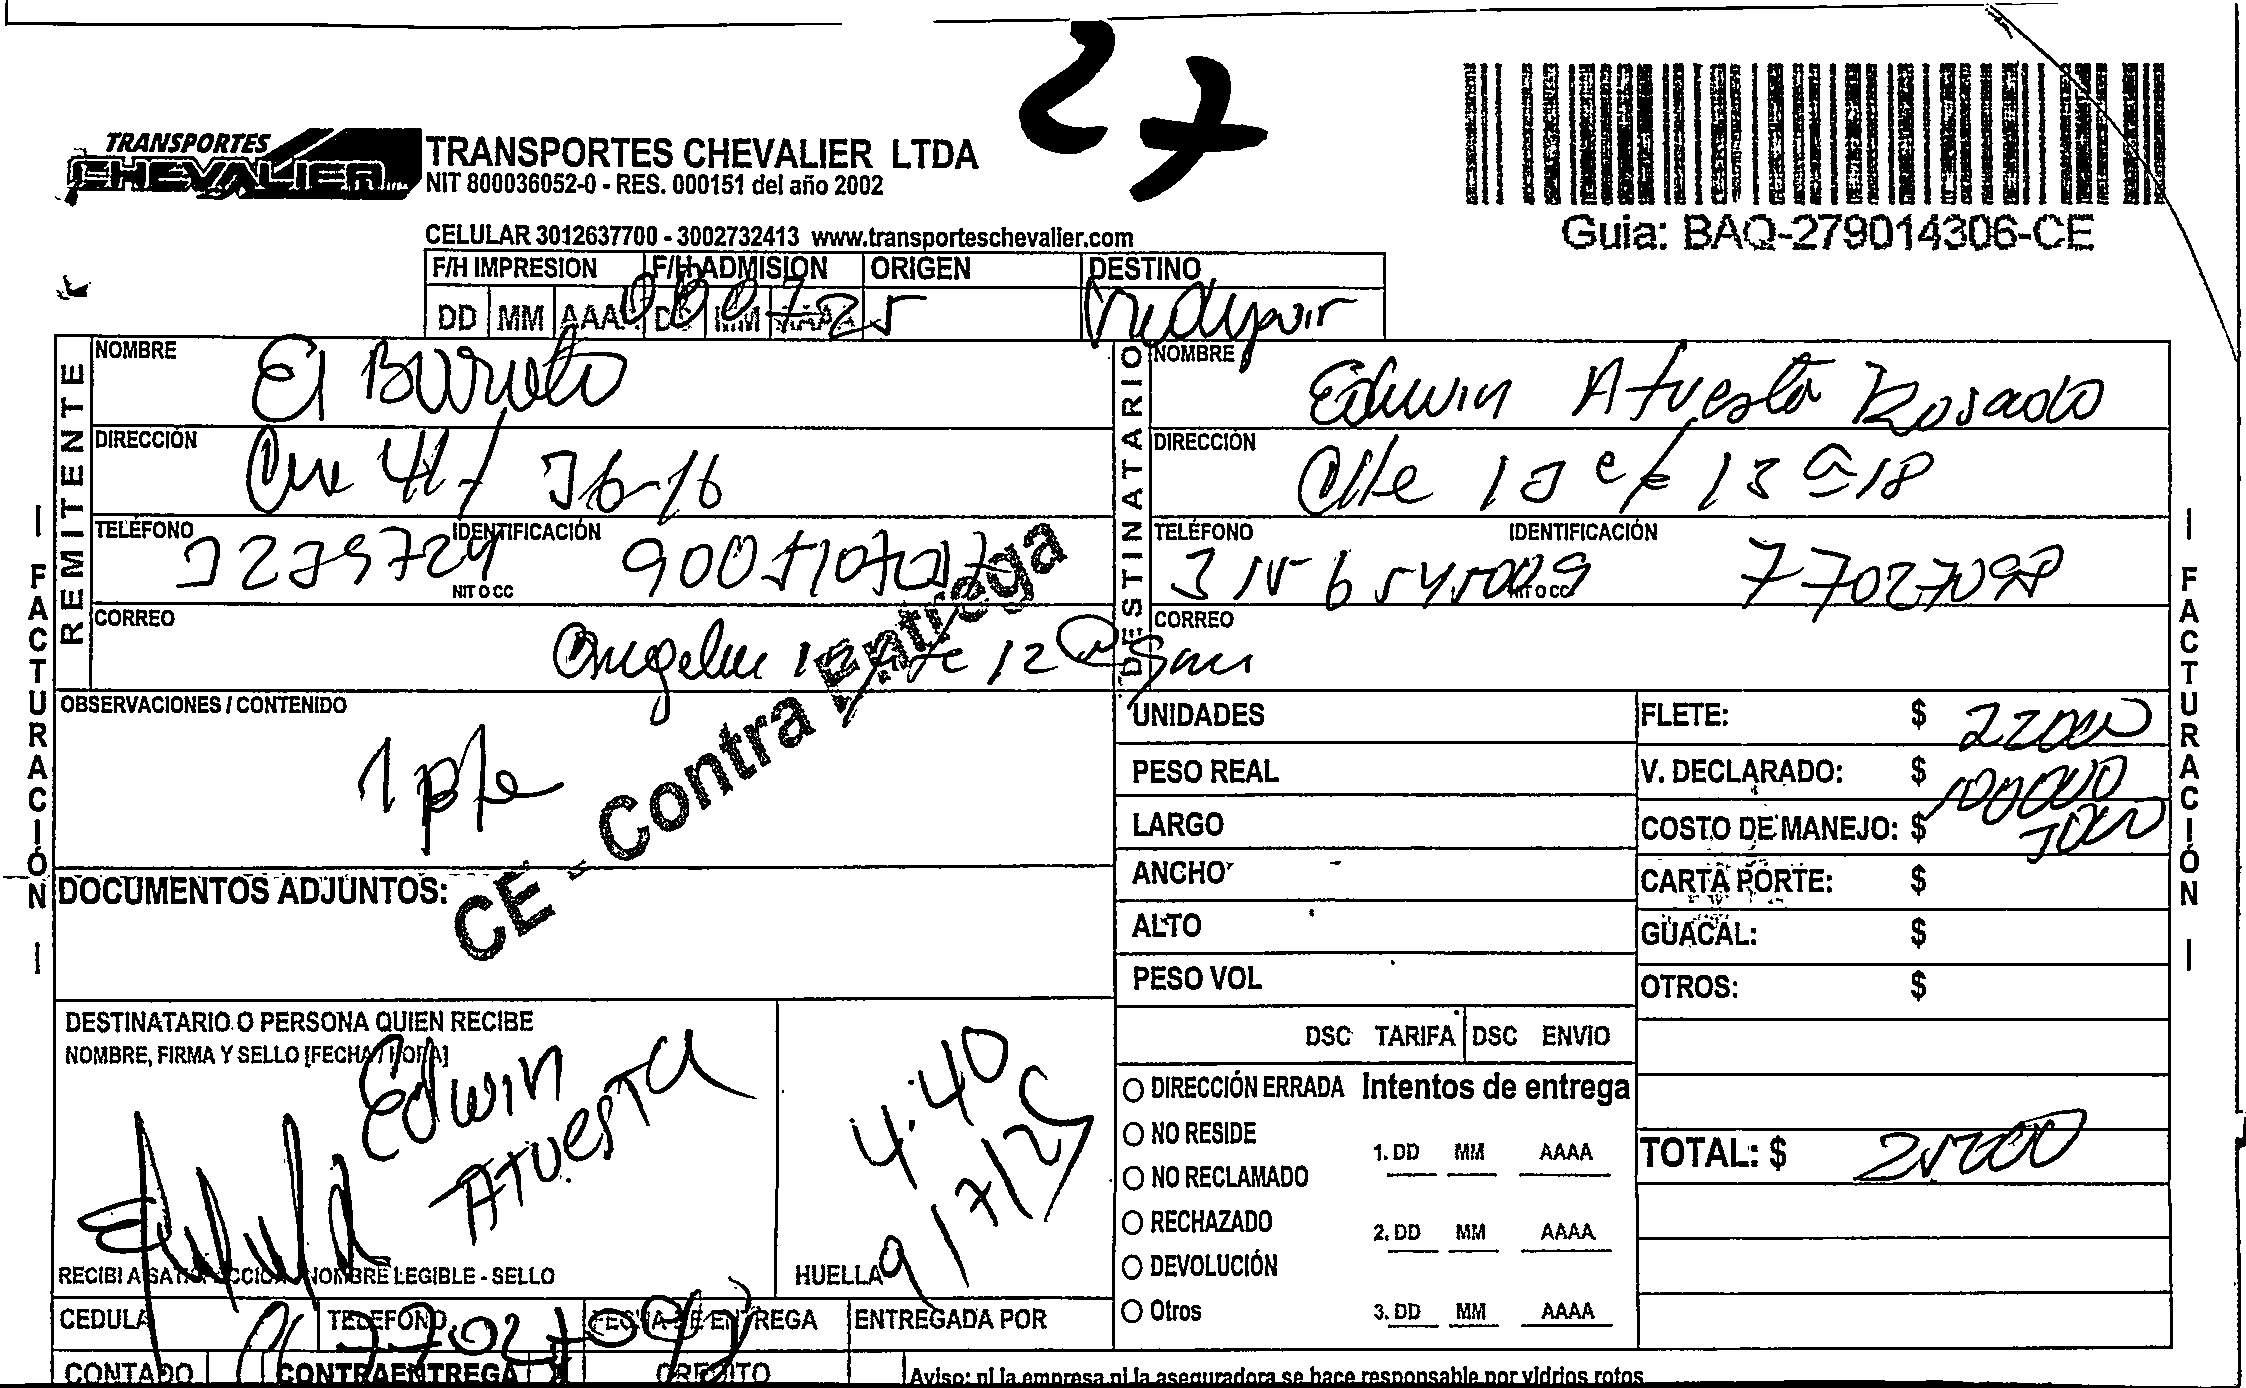 27
TRANSPORTES
CHEVALIER
TRANSPORTES CHEVALIER LTDA
NIT 800036052-0 - RES. 000151 del año 2002
CELULAR 3012637700 - 3002732413 www.transporteschevalier.com
Guia: BAQ-279014306-CE
F/H IMPRESION F/H ADMISION ORIGEN DESTINO
DD MM AAAA DD MM AAAA
08 07 25
REMITENTE
NOMBRE El Burrito
DIRECCIÓN 41 / 36-16
TELÉFONO IDENTIFICACIÓN
NIT O CC
CORREO
DESTINATARIO
NOMBRE Edwin Atuesta Rosado
DIRECCIÓN Clle 13 18
TELÉFONO IDENTIFICACIÓN 77027098
NIT O CC
CORREO
CE - Contra Entrega
OBSERVACIONES / CONTENIDO
1 pte
DOCUMENTOS ADJUNTOS:
UNIDADES
PESO REAL
LARGO
ANCHO
ALTO
PESO VOL
DSC TARIFA DSC ENVIO
FLETE: $ 22000
V. DECLARADO: $ 1000000
COSTO DE MANEJO: $ 3000
CARTA PORTE: $
GUACAL: $
OTROS: $
TOTAL: $ 25000
DESTINATARIO O PERSONA QUIEN RECIBE
NOMBRE, FIRMA Y SELLO [FECHA / HORA]
Edwin
Atuesta
4:40
9/7/25
RECIBI A SATISFACCION NOMBRE LEGIBLE - SELLO
HUELLA
DIRECCIÓN ERRADA
NO RESIDE
NO RECLAMADO
RECHAZADO
DEVOLUCIÓN
Otros
Intentos de entrega
1. DD MM AAAA
2. DD MM AAAA
3. DD MM AAAA
CEDULA TELEFONO FECHA DE ENTREGA ENTREGADA POR
77027098
CONTADO CONTRAENTREGA CREDITO
Aviso: ni la empresa ni la aseguradora se hace responsable por vidrios rotos
| FACTURACIÓN |
| FACTURACIÓN |